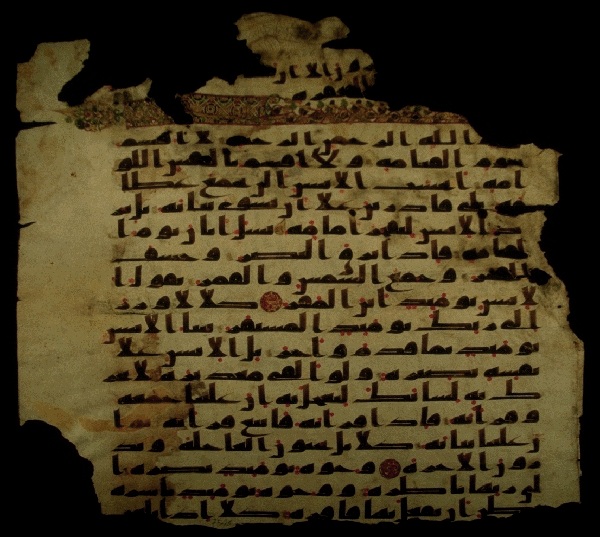 ون الا ان
الله الرحمن الرحيم لا اقسم
بيوم القيامة ولا اقسم بالنفس اللو
امة ايحسب الانسن الن نجمع عظا
مه بلى قادرين على ان نسوي بنانه بل ير
يد الانسن ليفجر امامه يسل ايان يوم ا
لقيامة فاذا برق البصر وخسف
القمر وجمع الشمس والقمر يقول ا
لانسن يومئذ اين المفر كلا لا وزر
الى ربك يومئذ المستقر ينبا الانسن
يومئذ بما قدم واخر بل الانسن على
نفسه بصيرة ولو القى معاذيره لا تحر
ك به لسانك لتعجل به ان علينا جمعه
وقرانه فاذا قرانه فاتبع قرانه ثم ا
ن علينا بيانه كلا بل تحبون العاجلة وتذ
رون الاخرة وجوه يومئذ ناضرة ا
لى ربها ناظرة ووجوه يومئذ باسرة
تظن ان يفعل بها فاقرة كلا اذا